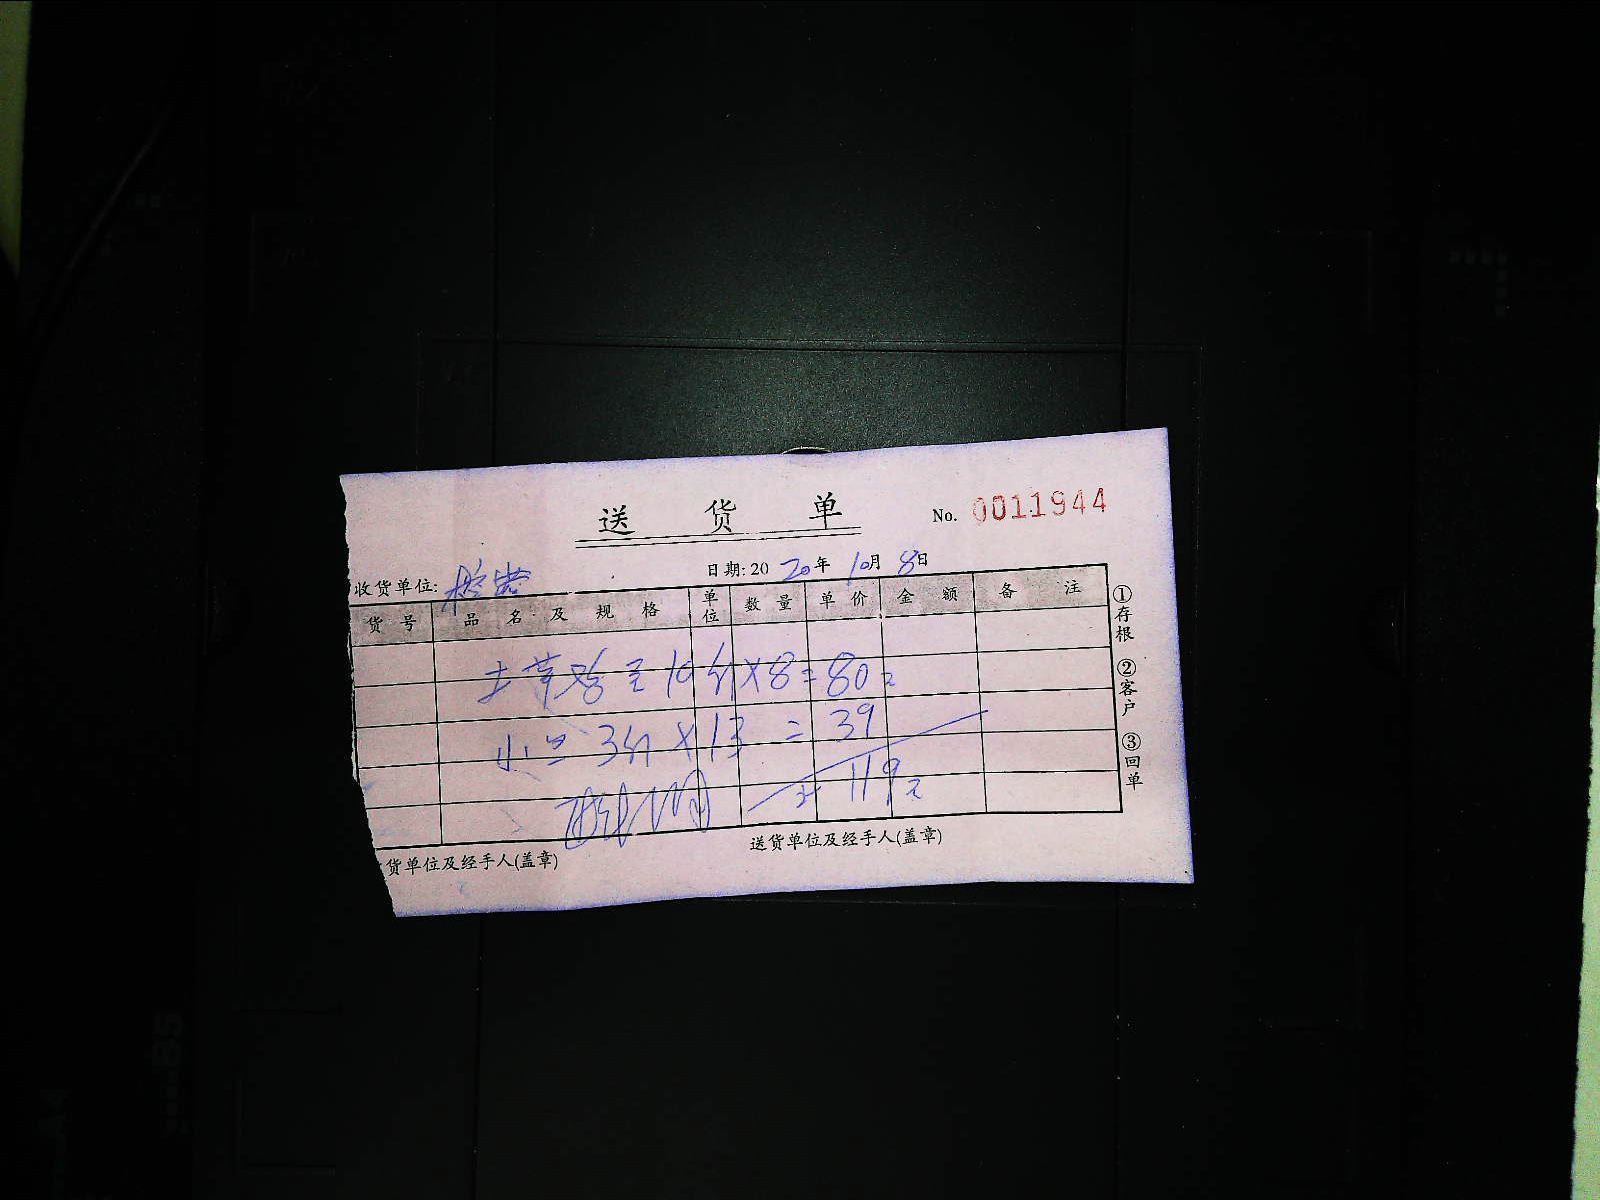 送货单 No. 0011944
收货单位: 日期:2020年10月8日
货号 品名及规格 单位 数量 单价 金额 备注
10斤×8=80元
小 3斤×13=39
119元
货单位及经手人(盖章) 送货单位及经手人(盖章)
①存根 ②客户 ③回单